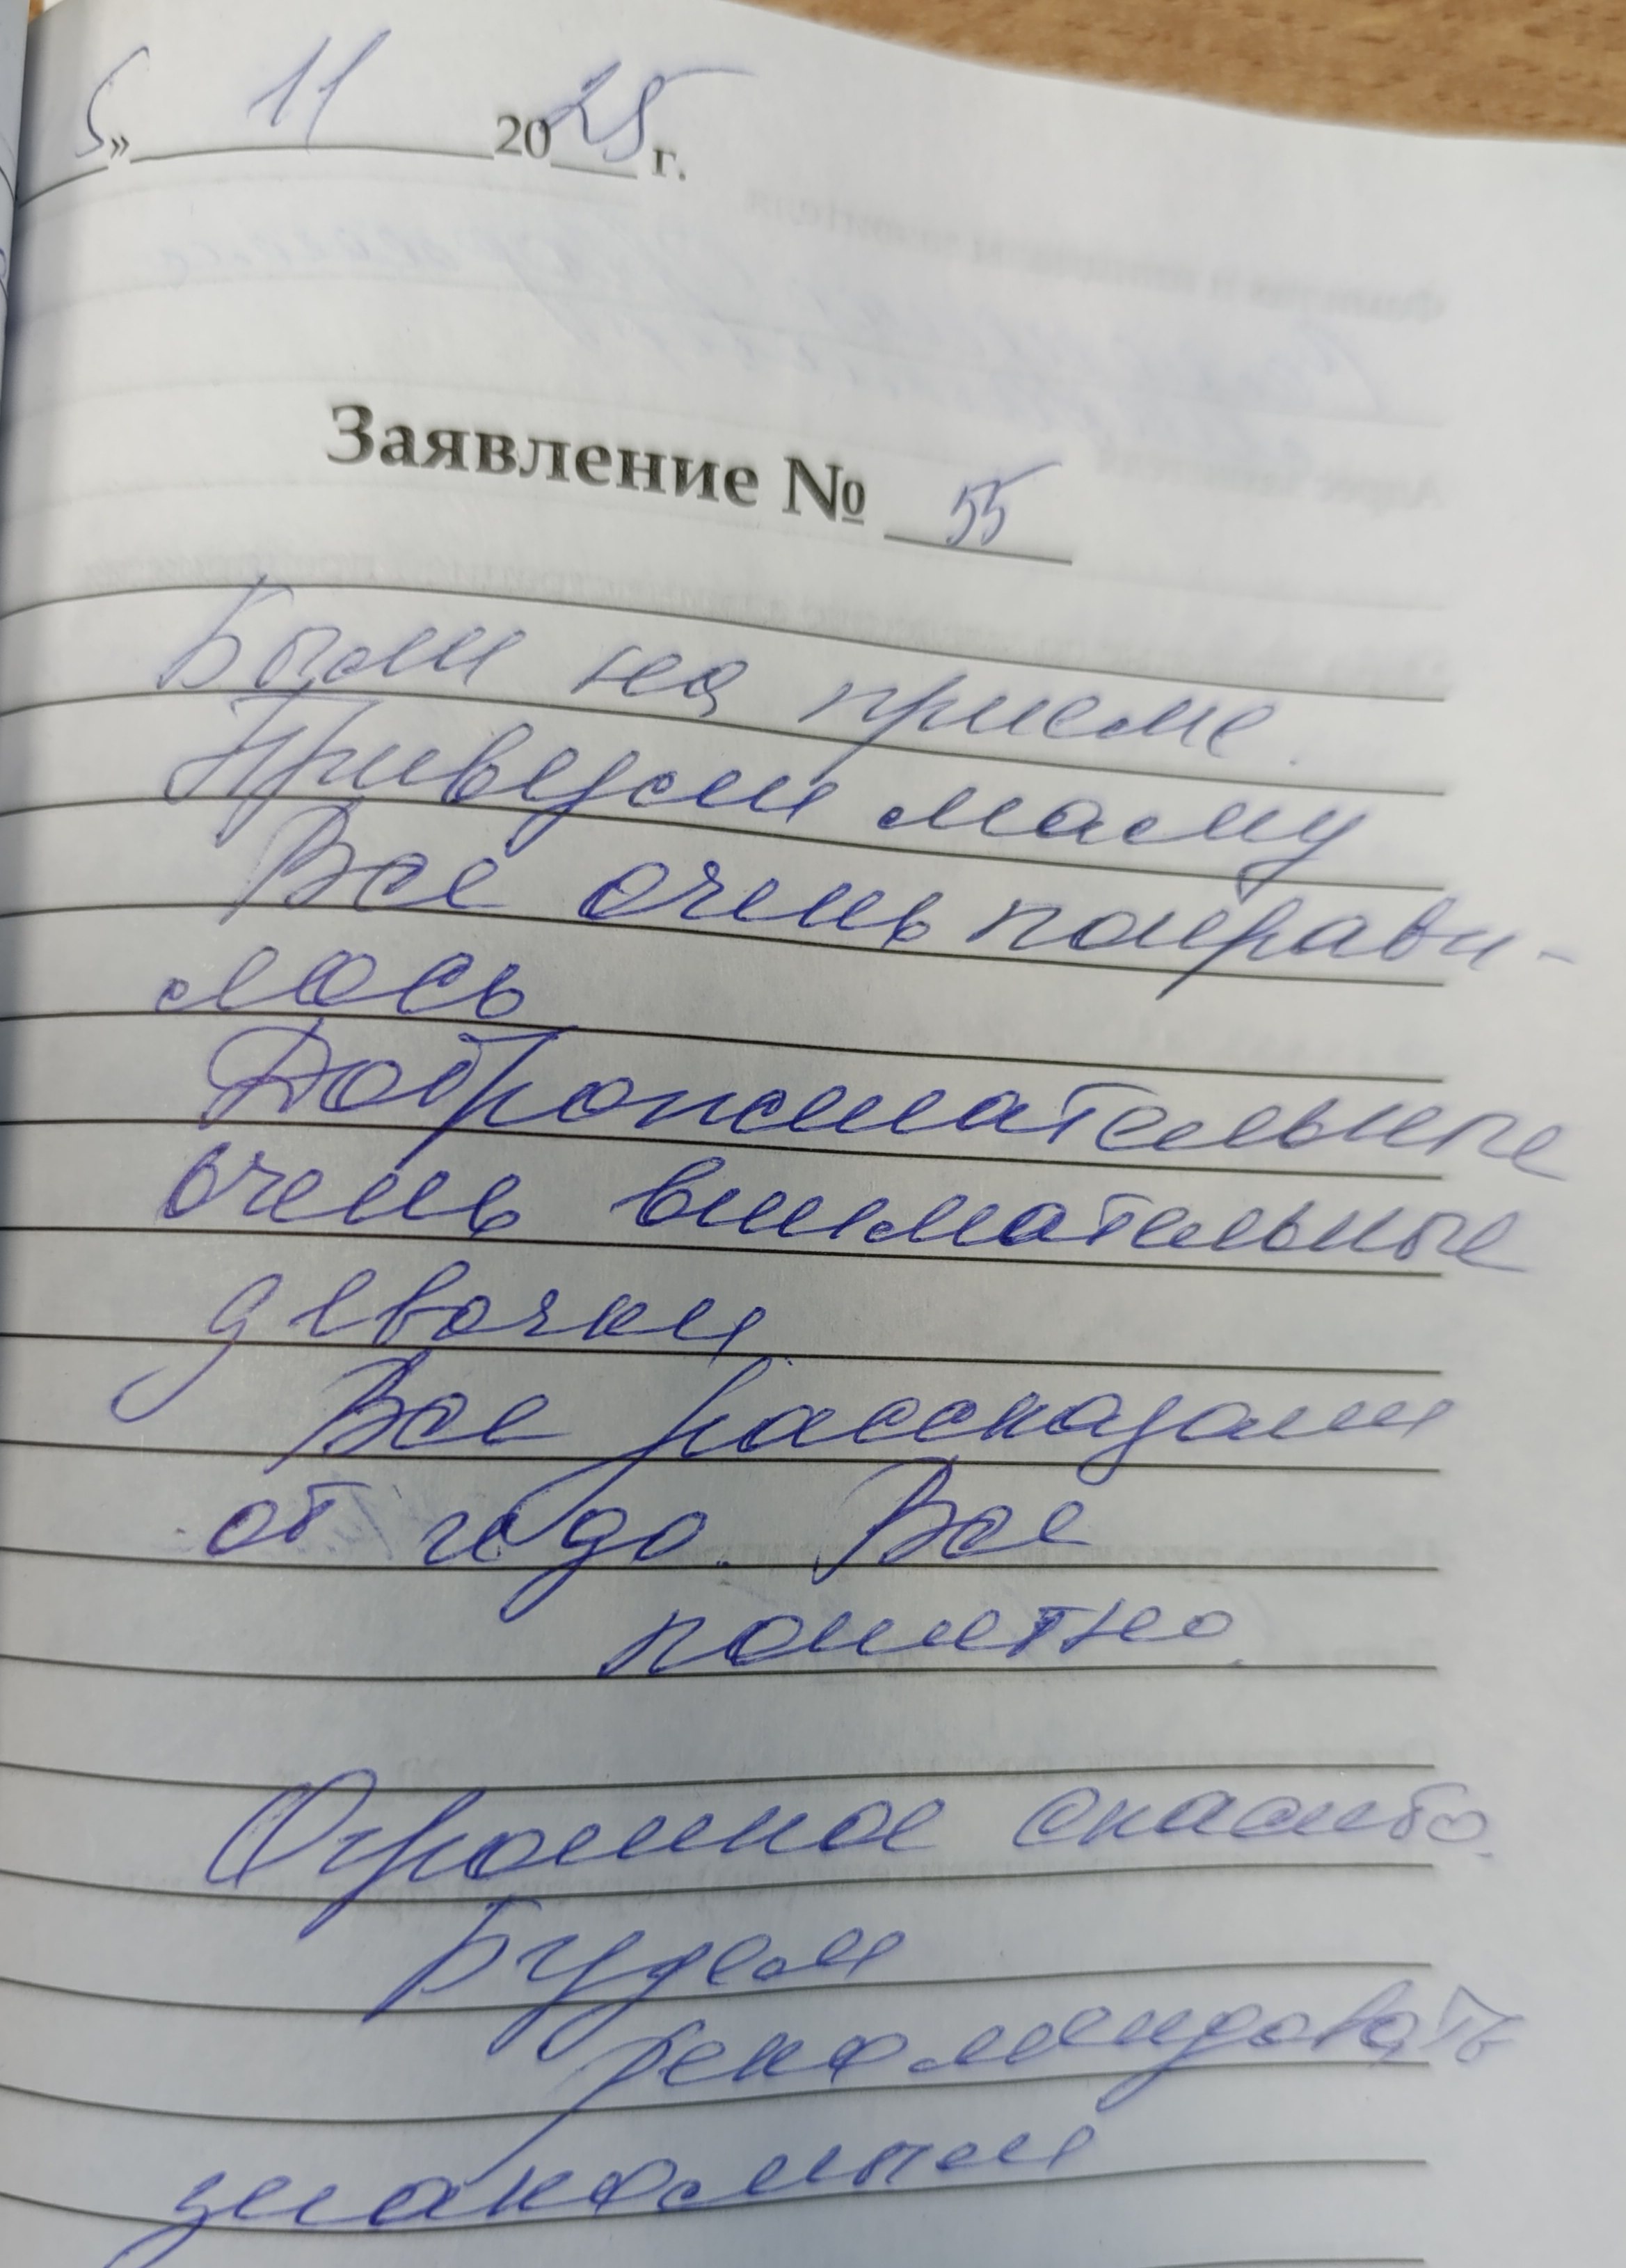 5» 11 2025 г.
Заявление № 55
Были на приеме.
Привезли маму
Все очень понрави-
лось
Доброжелательные
очень внимательные
девочки
Все рассказали
от и до. Все
понятно.
Огромное спасибо.
Будем
рекомендовать
знакомым